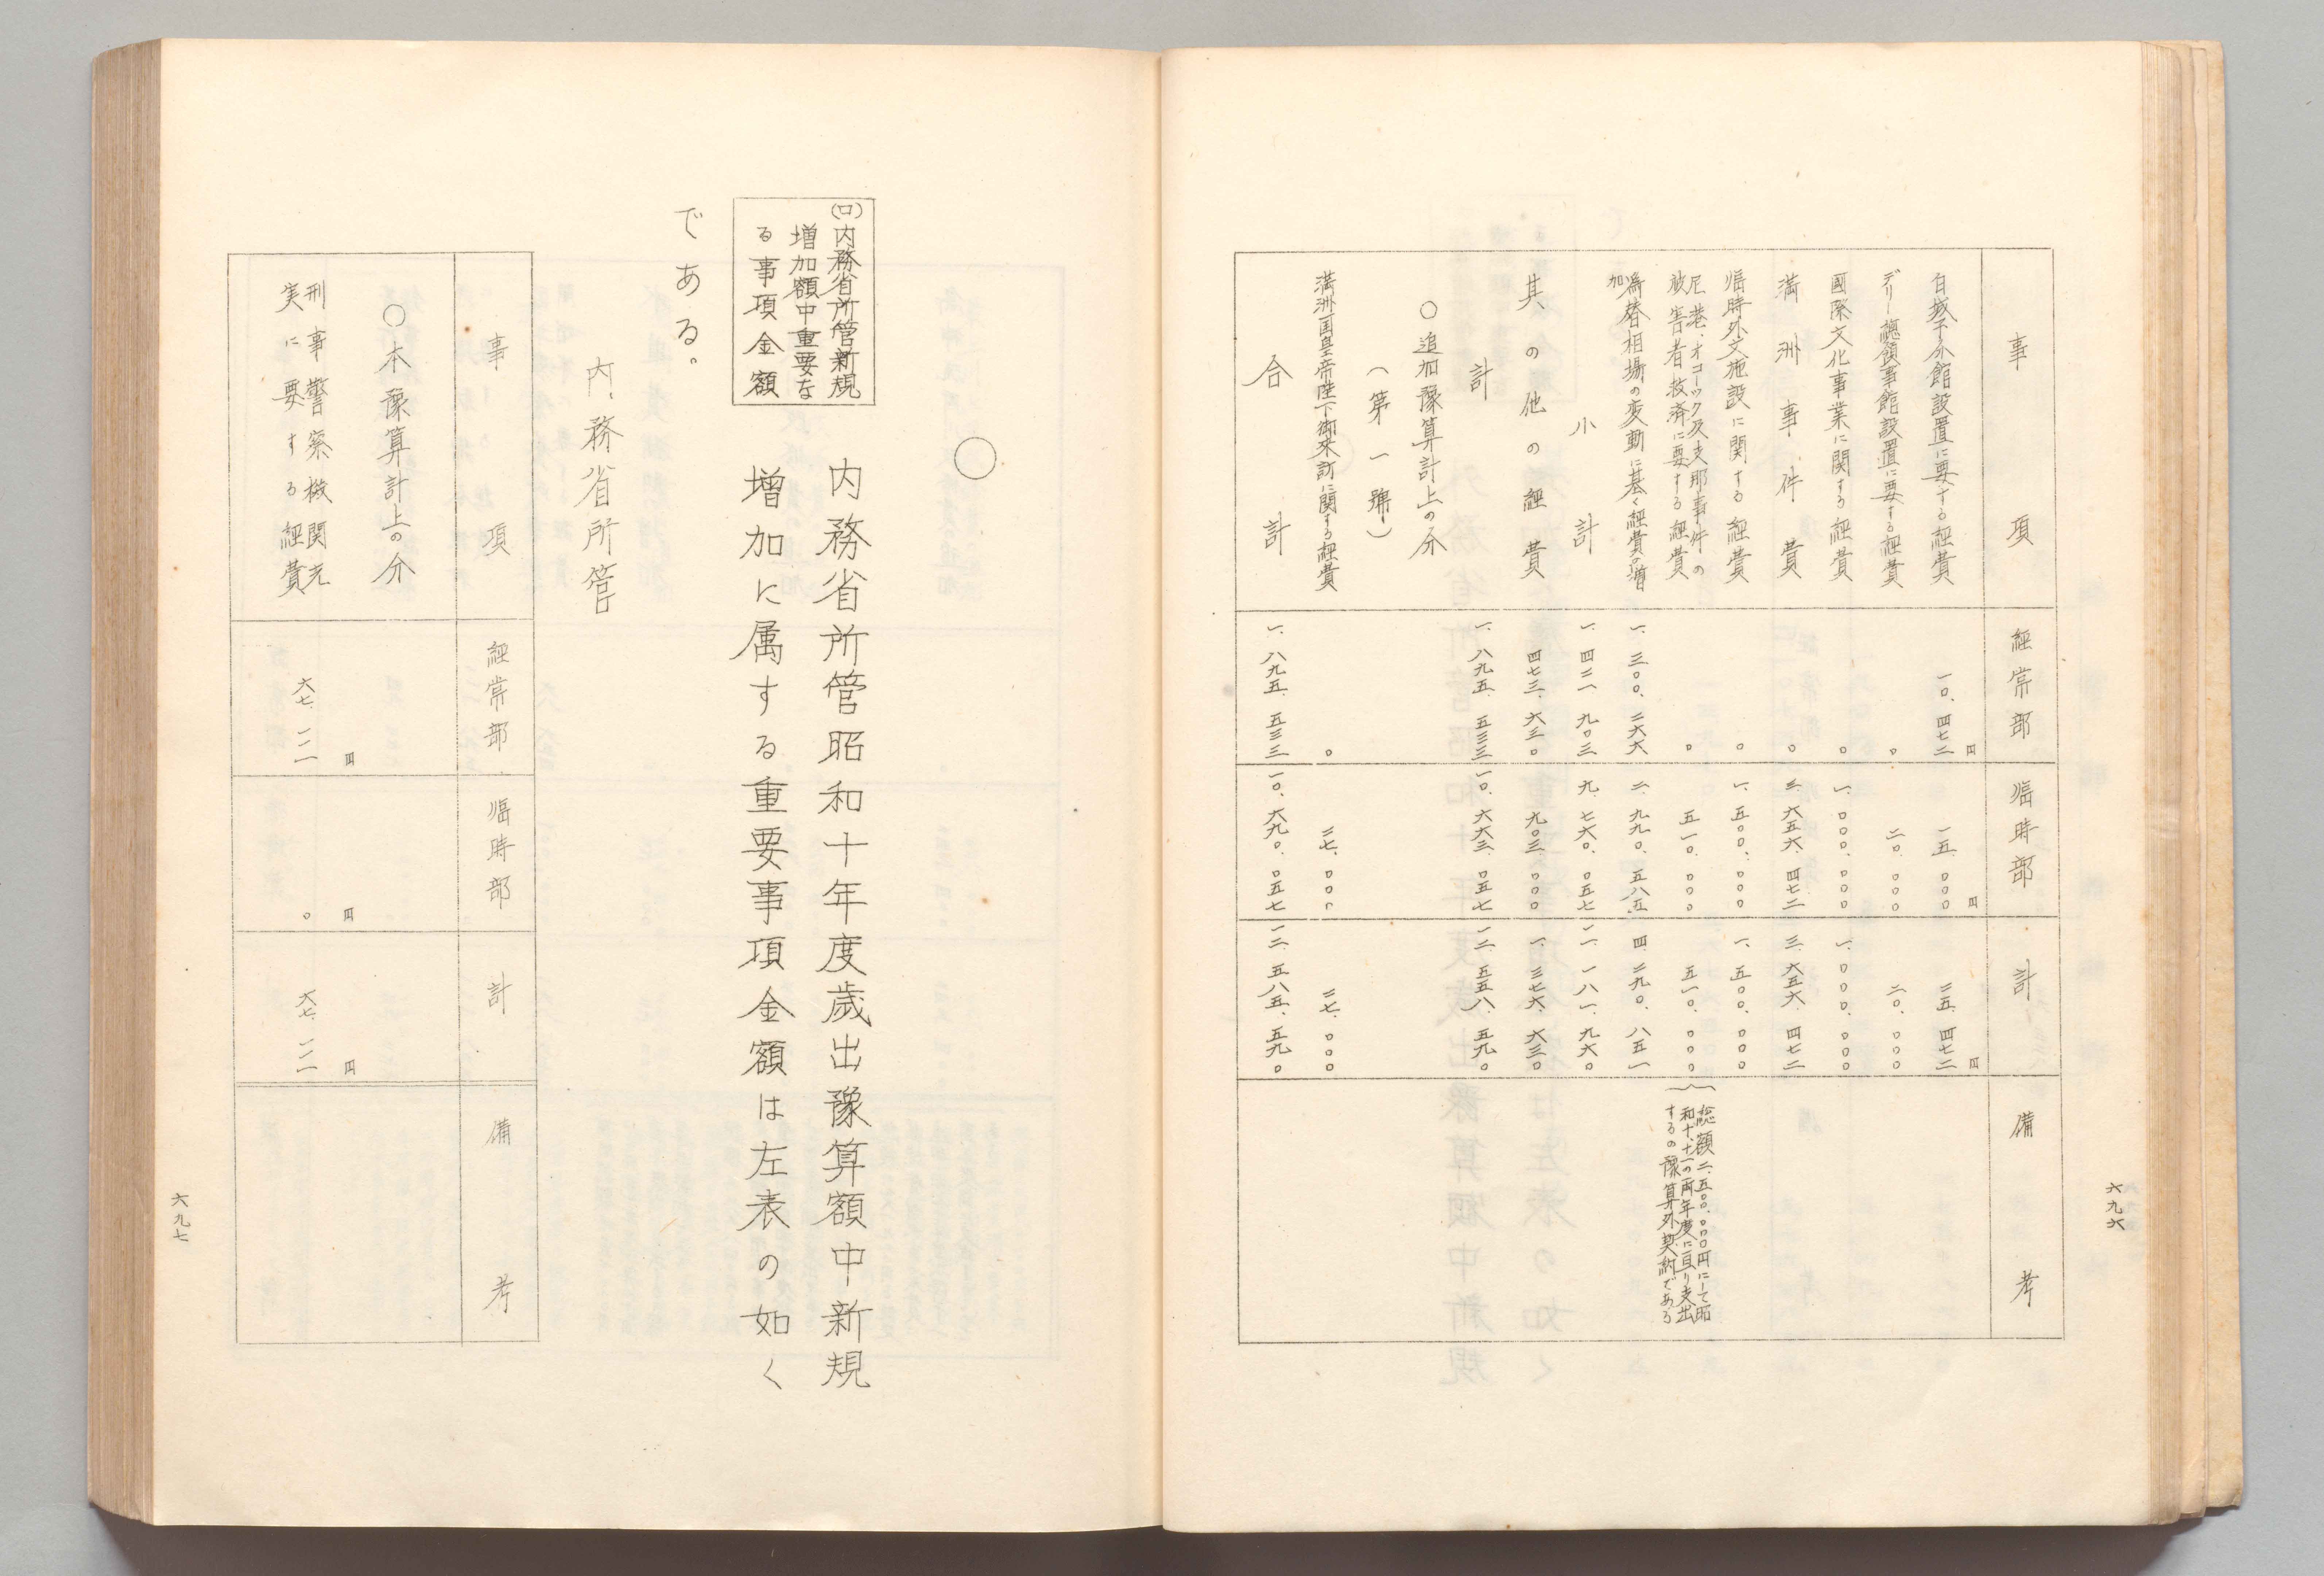 六九六
事項 経常部 臨時部 計 備考
白城子分館設置に要する経費 一〇、四七二円 一五、〇〇〇円 二五、四七二円
デリー總領事館設置に要する経費 〇 二〇、〇〇〇 二〇、〇〇〇
國際文化事業に関する経費 〇 一、〇〇〇、〇〇〇 一、〇〇〇、〇〇〇
満洲事件費 〇 三、六五六、四七二 三、六五六、四七二
臨時外交施設に関する経費 〇 一、五〇〇、〇〇〇 一、五〇〇、〇〇〇
尼港、オコーツク及支那事件の
被害者救済に要する経費 〇 五一〇、〇〇〇 五一〇、〇〇〇
総額二、五〇〇、〇〇〇円にして昭
和十、十一の両年度に亘り支出
するの豫算外契約である
為替相場の変動に基く経費の増
加 一、三〇〇、二六六 二、九九〇、五八五 四、二九〇、八五一
小計 一、四二一、九〇三 九、七六〇、〇五七 一一、一八一、九六〇
其の他の経費 四七三、六三〇 九〇三、〇〇〇 一、三七六、六三〇
計 一、八九五、五三三 一〇、六六三、〇五七 一二、五五八、五九〇
〇追加豫算計上の分
（第一號）
満洲国皇帝陛下御来訪に関する経費 〇 二七、〇〇〇 二七、〇〇〇
合計 一、八九五、五三三 一〇、六九〇、〇五七 一二、五八五、五九〇
〇
(ロ)内務省所管新規
増加額中重要な
る事項金額
内務省所管昭和十年度歳出豫算額中新規
増加に属する重要事項金額は左表の如く
である。
内務省所管
事項 経常部 臨時部 計 備考
〇本豫算計上の分 円 円 円
刑事警察機関充
実に要する経費 六七、一二一 〇 六七、一二一
六九七